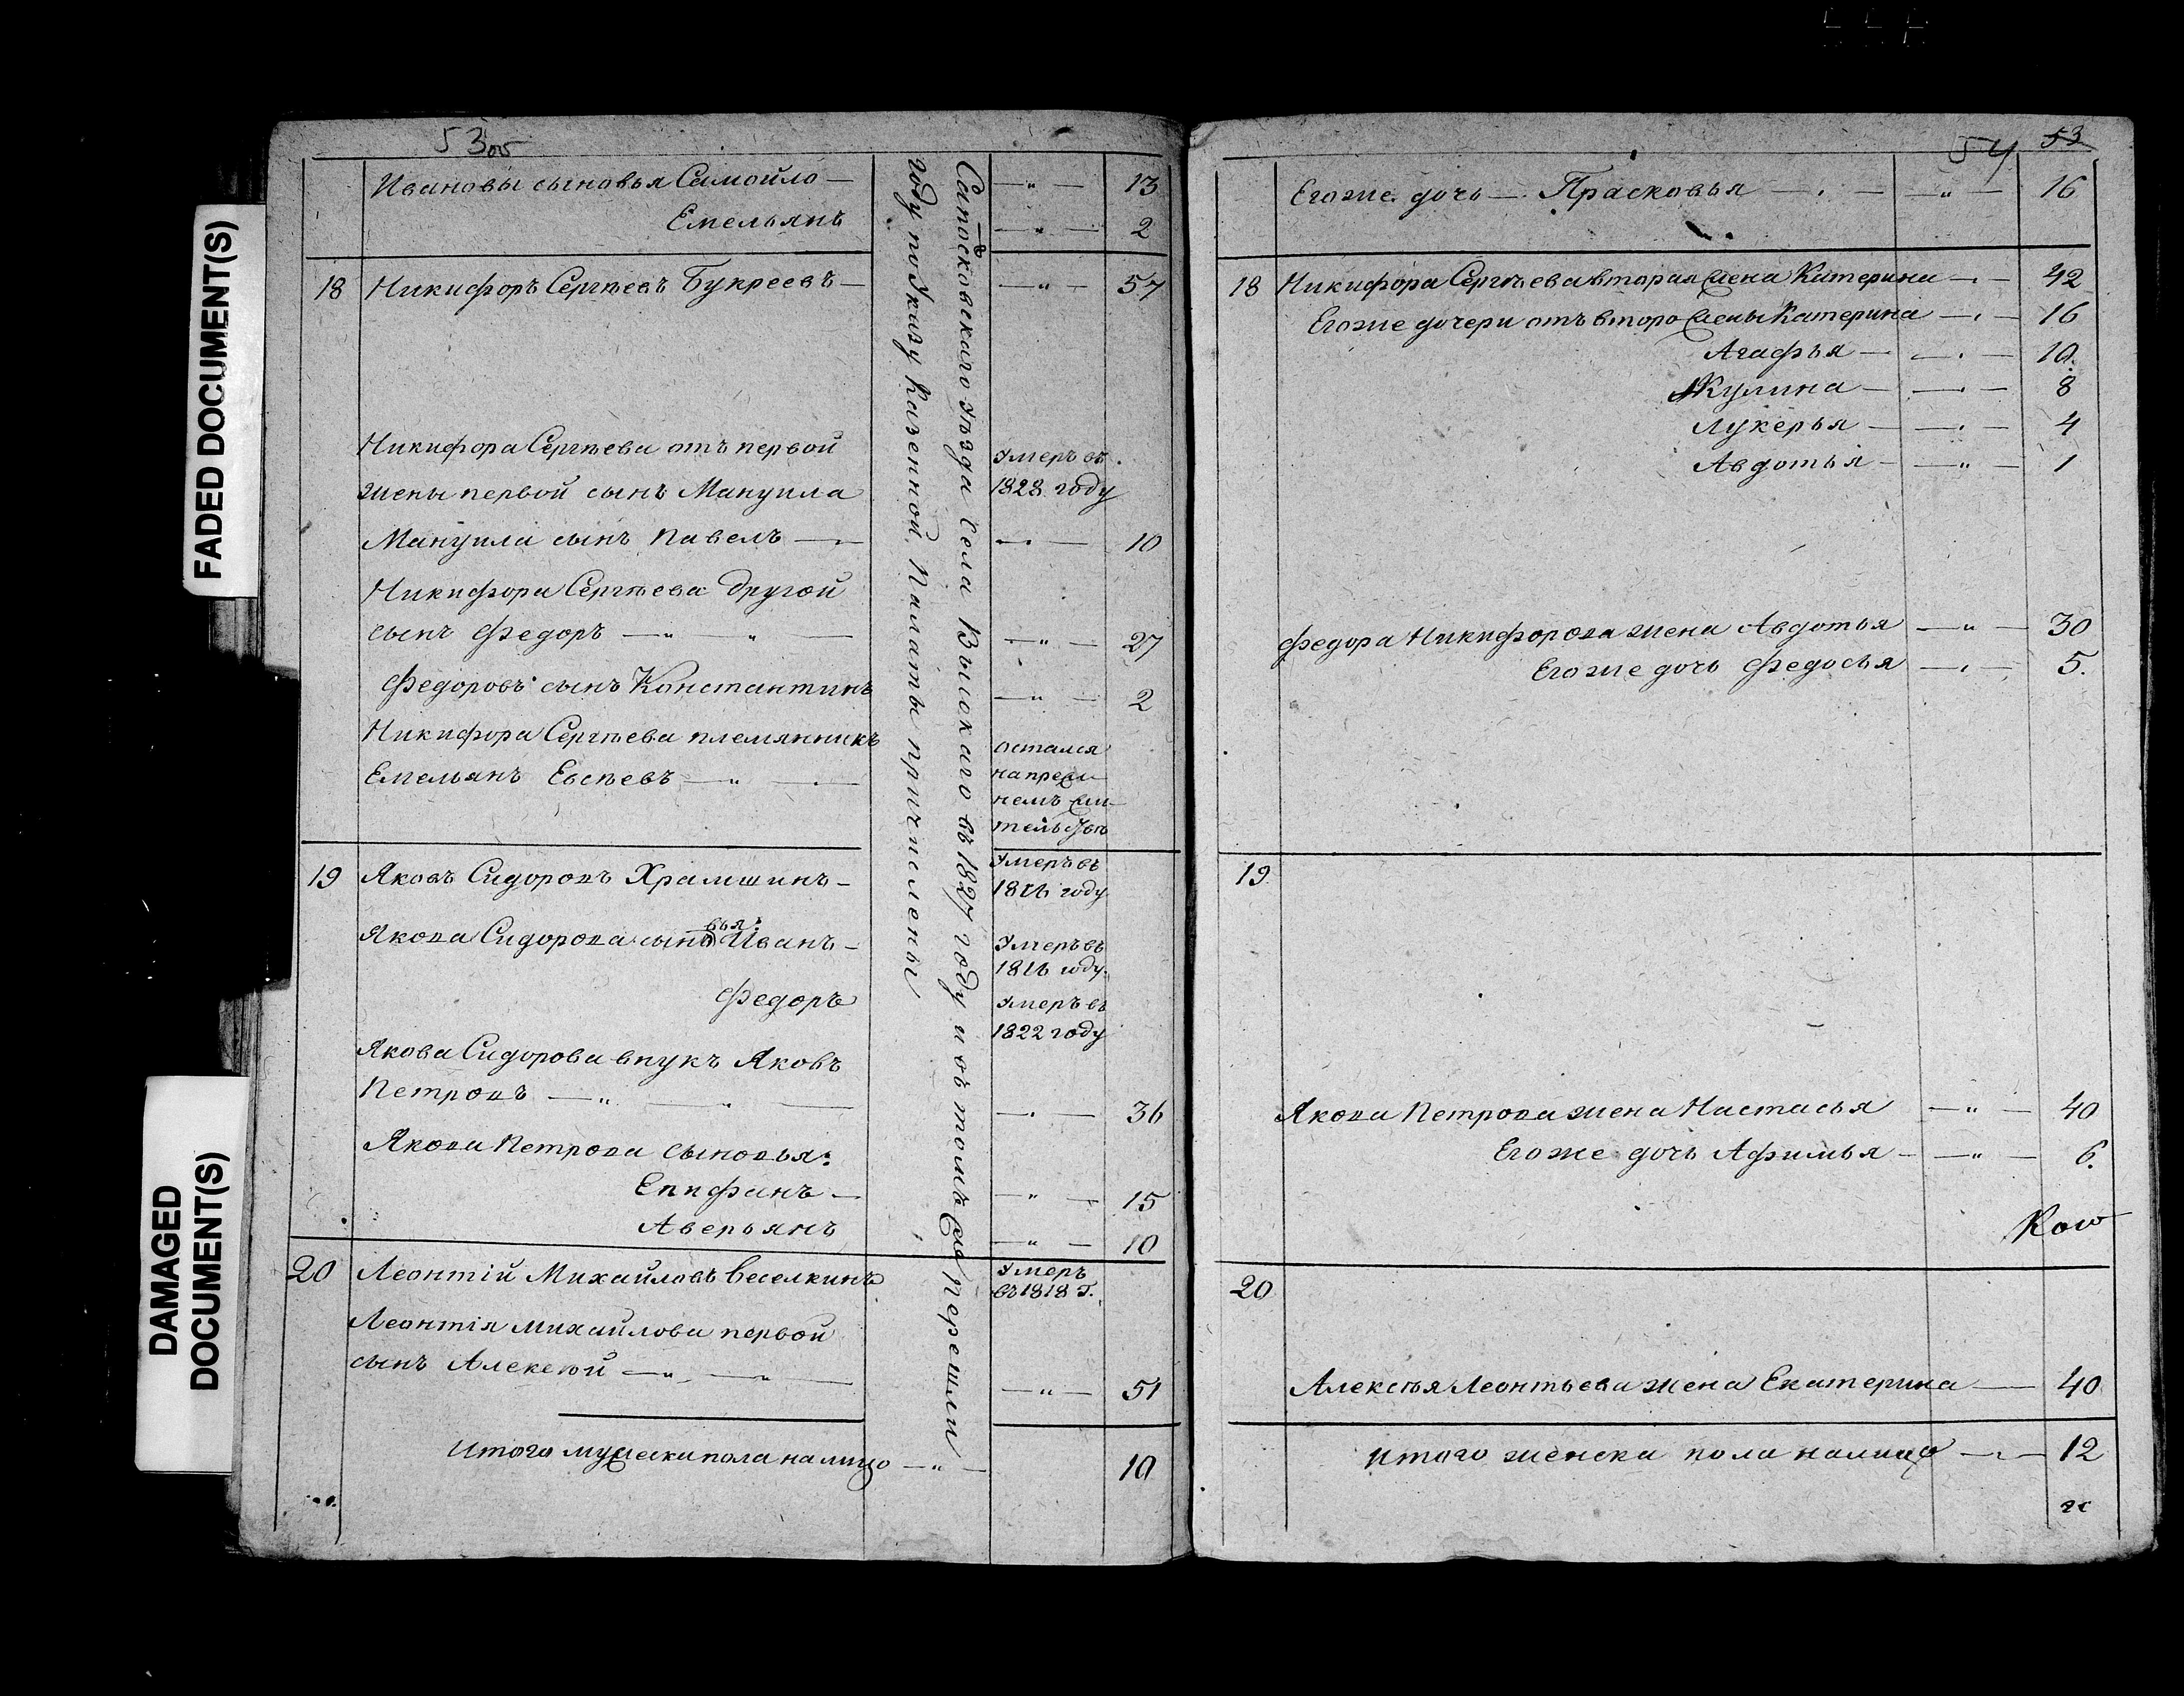 FADED DOCUMENT(S)
DAMAGED
DOCUMENT(S)
53об
Ивановы сыновья Самойло — " — 13
Емельянъ — " — 2
18 Никифоръ Сергѣевъ Букреевъ — " — 57
Никифора Сергѣева отъ первой
жены первой сынъ Мануила
Умеръ въ
1828 году
Мануила сынъ Павелъ — " — 10
Никифора Сергѣева другой
сынъ Федоръ — " — " — 27
Федоровъ сынъ Константинъ — " — 2
Никифора Сергѣева племянникъ
Емельянъ Евсѣевъ — " —
остался
на преж
немъ жи
тельствѣ
19 Яковъ Сидоровъ Храмшинъ —
Умеръ въ
1816 году
Якова Сидорова сыновья: Иванъ —
Умеръ въ
1816 году
Федоръ
Умеръ въ
1822 году
Якова Сидорова внукъ Яковъ
Петровъ — " — " — 36
Якова Петрова сыновья:
Епифанъ — " — 15
Аверьянъ — " — 10
20 Леонтій Михайловъ Веселкинъ
Умеръ
въ 1818 г.
Леонтія Михайлова первой
сынъ Алексѣй — " — " — 51
Итого мужеска пола налицо — " — 10
Сапожковскаго уѣзда села Высокаго въ 1827 году и въ томъ же перешли
году по Указу Казенной Палаты причислены
54 53
Егоже дочь — Прасковья — " — 16
18 Никифора Сергѣева вторая жена Катерина — 42
Егоже дочери отъ второ жены Катерина — 16
Агафья — 10.
Акулина — 8
Лукерья — 4
Авдотья — " — 1
Федора Никифорова жена Авдотья — " — 30
Егоже дочь Федосья — 5.
19
Якова Петрова жена Настасья — " — 40
Егоже дочь Афимья — " — 6.
20
Алексѣя Леонтьева жена Екатерина — 40
Итого женска пола налицо — 12